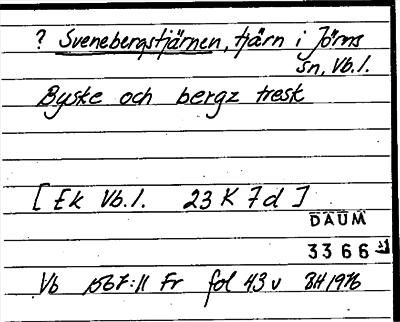 ? Svenebergstjärnen, tjärn i Jörns
sn, Vb.l.
Byske och bergz tresk
[ Ek Vb.l. 23 K 7d ]
DAUM
3366
Vb 1567:11 Fr fol 43 v BH 1976